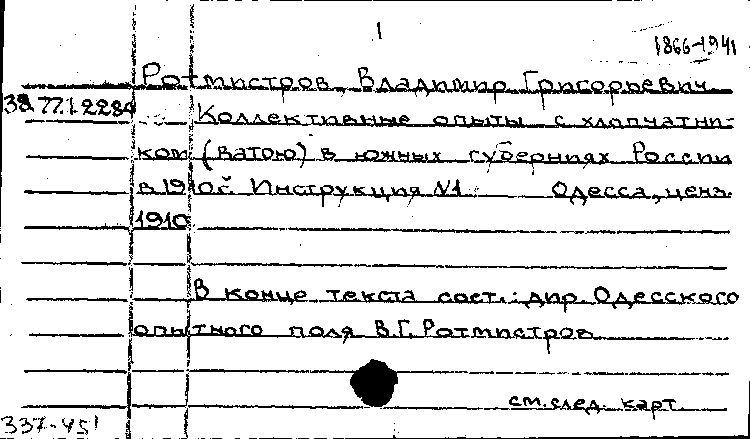 1
1866-1941
Ротмистров, Владимир Григорьевич
38.77.1.228
Коллективные опыты с хлопчатни-
ком (ватою) в южных губерниях России
в 1910 г. Инструкция N1. Одесса, ценз.
1910
В конце текста сост.: дир. Одесского
опытного поля В.Г. Ротмистров
см. след. карт.
337-45